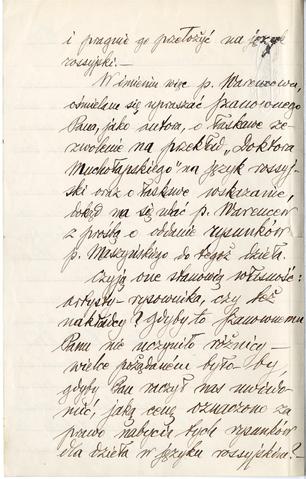 i pragnie go przełożyć na język
rossyjski.—
W imieniu więc p. Warencowa,
ośmielam się upraszać Szanownego
Pana, jako autora, o łaskawe ze-
zwolenie na przekład „Doktora
Muchołapskiego" na język rossyj-
ski oraz o łaskawe wskazanie,
dokąd ma się udać p. Warencow
z prośbą o oddanie rysunków
p. Maszyńskiego do tegoż dzieła.
Czyją one stanowią własność:
artysty-rysownika, czy też
nakładcy? Gdyby to Szanownemu
Panu nie uczyniło różnicy—
wielce pożądanem było by,
gdyby Pan raczył nas uwiado-
mić, jaką cenę oznaczono za
prawo nabycia tych rysunków
dla dzieła w języku rossyjskim?—